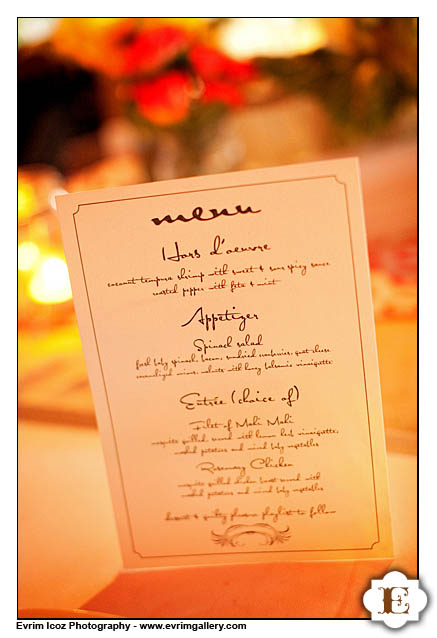 menu
Hors d'oeuvre
coconut tempura shrimp with sweet & sour spicy sauce
roasted pepper with feta & mint
Appetizer
Spinach salad
fresh baby spinach, bacon, sundried cranberries, goat cheese
caramelized onions, walnuts with honey balsamic vinaigrette
Entrée (choice of)
Filet of Mahi Mahi
mesquite grilled, served with lemon herb vinaigrette,
mashed potatoes and mixed baby vegetables
Rosemary Chicken
mesquite grilled chicken breast served with
mashed potatoes and mixed baby vegetables
dessert & guilty pleasure playlist to follow
E
Evrim Icoz Photography - www.evrimgallery.com